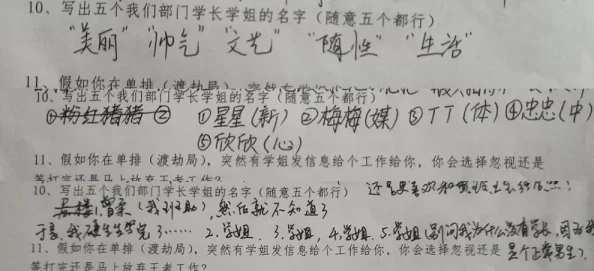 10、写出五个我们部门学长学姐的名字（随意五个都行）
“美丽” “帅气” “文艺” “随性” “生活”
11、假如你在单排（渡劫局），突然
10、写出五个我们部门学长学姐的名字（随意五个都行）
①粉红猪猪② ①星星(新) ②梅梅(媒) ③TT(体) ④忠忠(中)
⑤欣欣(心)
11、假如你在单排（渡劫局），突然有学姐发信息给个工作给你，你会选择忽视还是
等打完还是马上放弃王者工作？
10、写出五个我们部门学长学姐的名字（随意五个都行）
(我班助)，然后就不知道了
2.学姐. 3.学姐, 4.学姐. 5.学姐(别问我为什么没有学长，因为我
11、假如你在单排（渡劫局），突然有学姐发信息给个工作给你，你会选择忽视还是 是个正常男生)
等打完还是马上放弃王者工作？